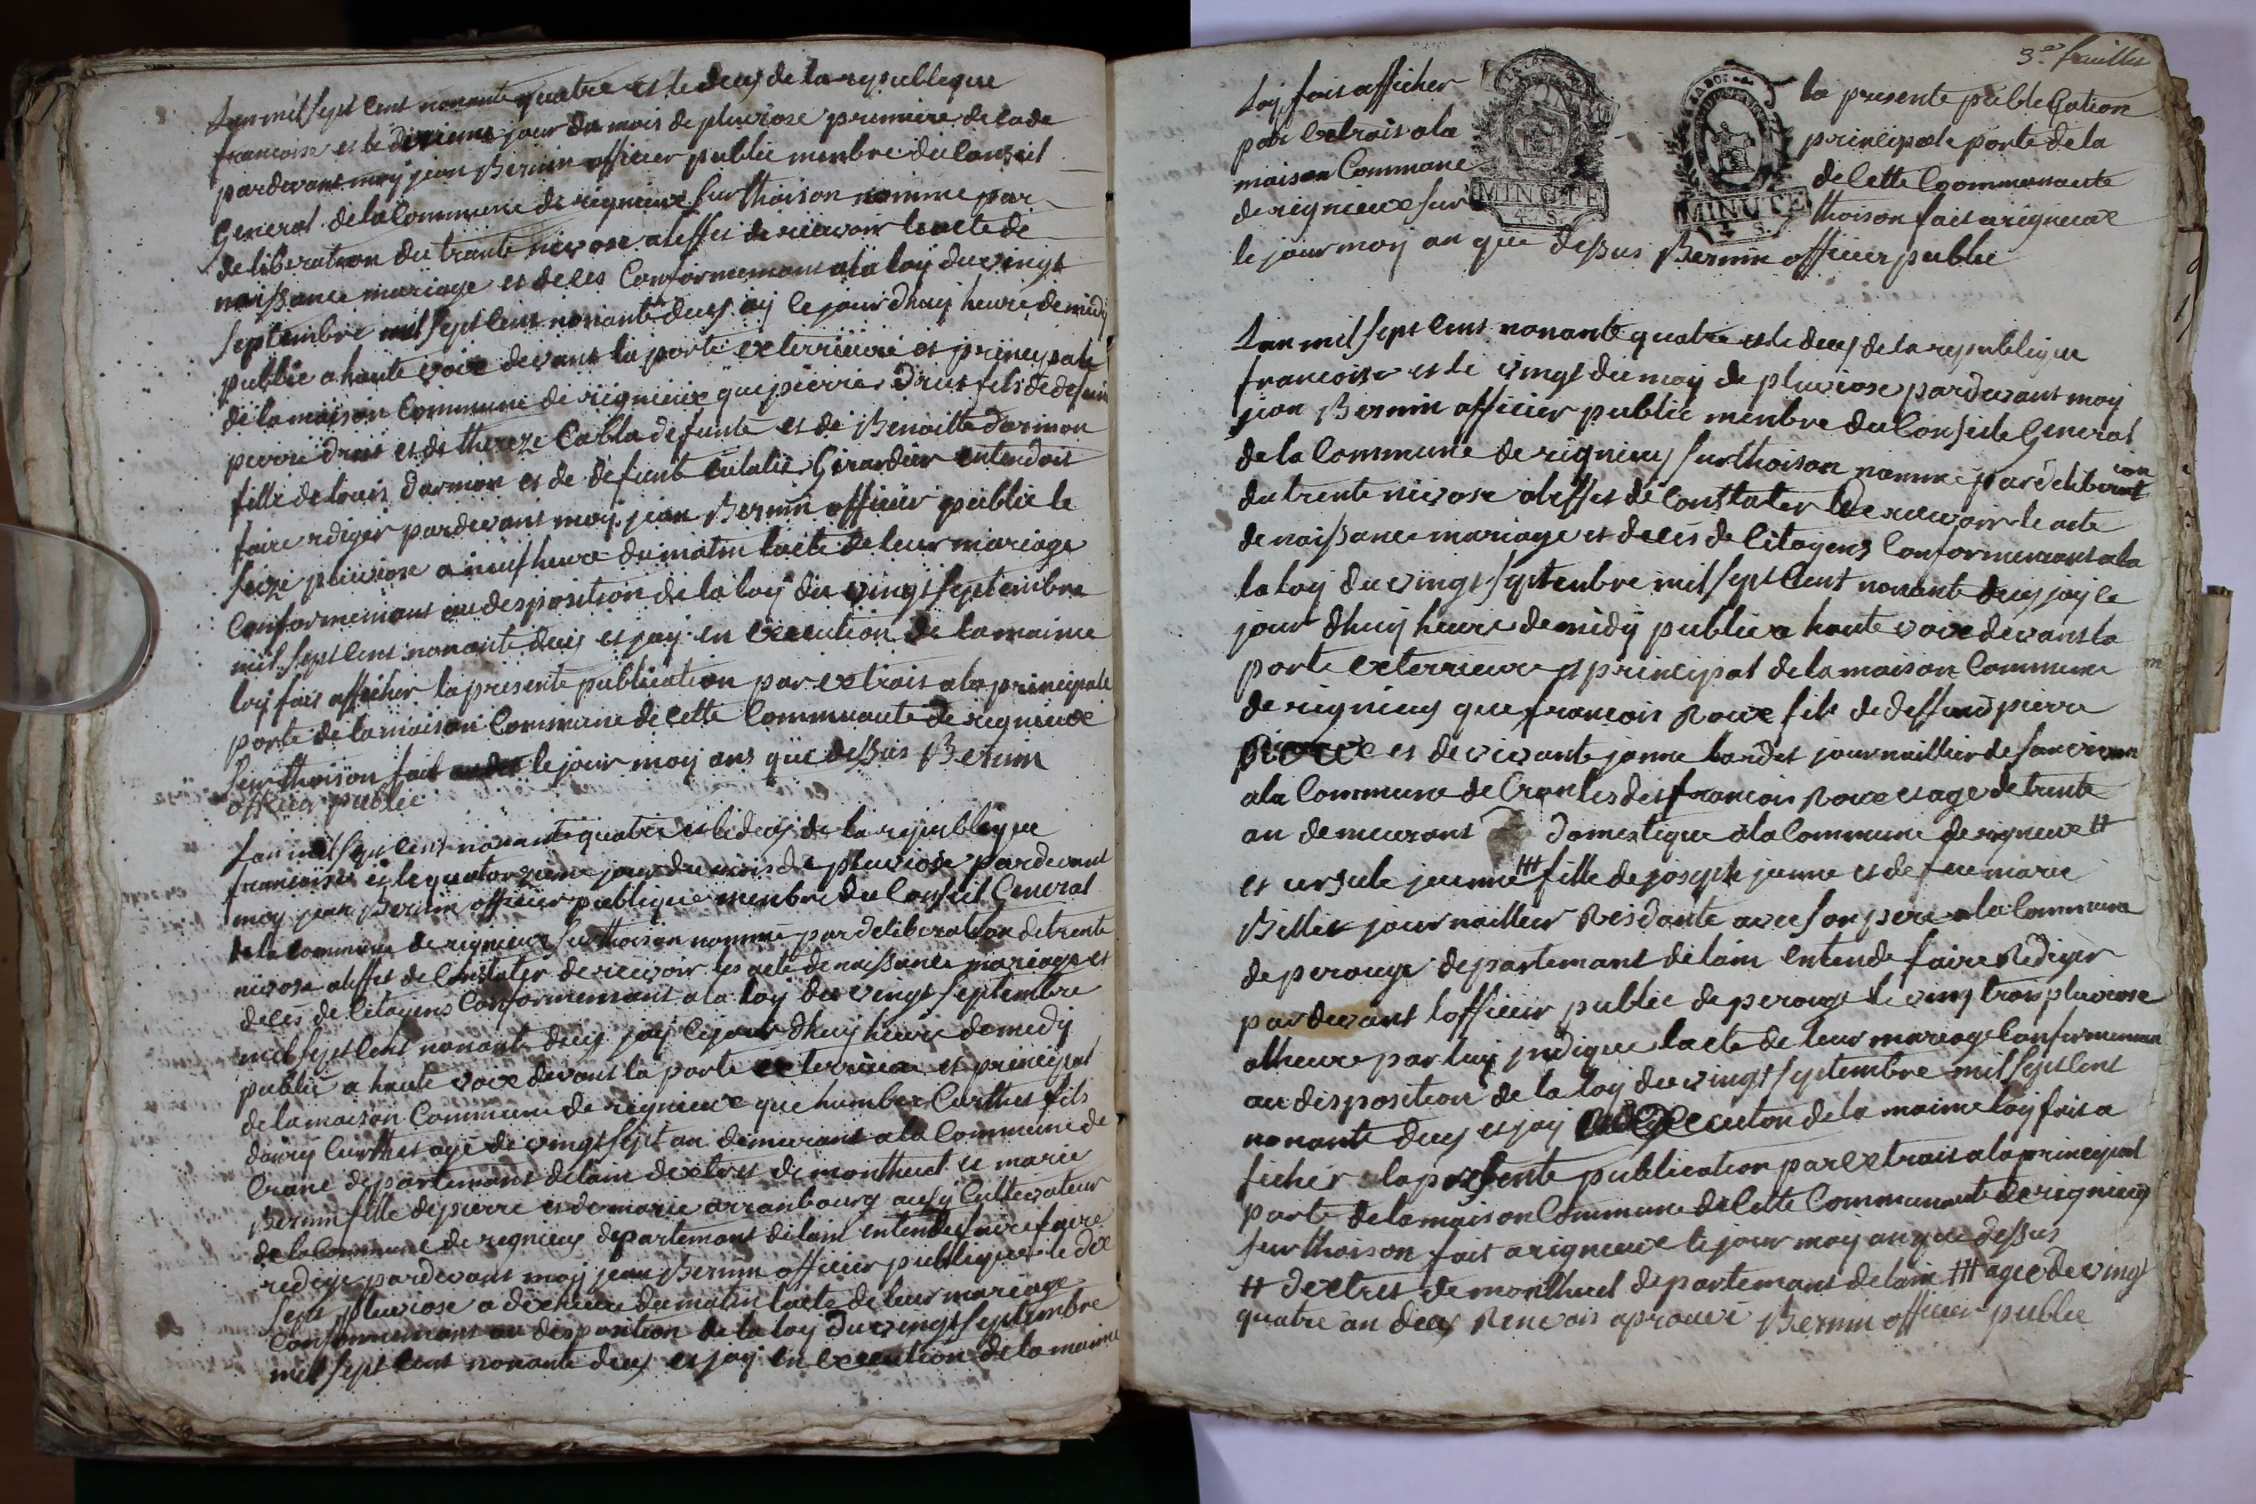 Lan mil sept cent nonante quatre et le deux de la republique
francoise et le dixieme jour du mois de pluviose premiere decade
pardevant moy jean Bernin officier public menbre du Conseil
General de la Commune de rignieux sur thoison nomme par
deliberation du trante nivose aleffet de recevoir les acte de
naissance mariage et deces Conformemant a la loy du vingt
septembre mil sept cent nonante deux ay le jourdhuy heure de midy
publie a haute voix devant la porte exterrieure et principale
de la maison Commune de rignieux que pierre Druet fils de defunt
pierre druet et de thereze Cabla defunte et de Benoitte darmon
fille de louis darmon et de defunte eulalie Girardier entendoit
faire rdiger pardevant moy jean Bernin officier public le
seize pluviose a neuf heure du matin lacte de leur mariage
Conformemant au desposition de la loy du vingt septembre
mil sept cent nonante deux et jay en execution de la maime
loy fait afficher la presente publication par extrait a la principale
porte de la maison Commune de cette Communaute de rignieux
sur thoison fait le jour moy ans que dessus Bernin
officier public
Lan mil sept cent nonante quatre et le deux de la republique
francoise et le quatorzieme jour du mois de pluviose pardevant
moy jean Bernin officier publique menbre du Conseil General
de la Commune de rignieux sur thoison nomme par deliberation de trente
nivose aleffet de Constater de recevoir les acte de naissance mariage et
deces de Citoyens Conformemant a la loy du vingt septembre
mil sept cent nonante deux jay le jour dhuy heure de midy
publie a haute voix devant la porte exterrieure et principal
de la maison Commune de rignieux que humber Curthet fils
dainy Curthet age de vingt sept an demurant a la Commune de
Crane departemant delain dextret de montluel et marie
Bernin fille de pierre et de marie arranbourg ausy Cultivateur
de la Commune de rignieux departemant delain entende faire faire
redige pardevant moy jean Bernin officier publique le dix
sept pluviose a dix heure du matin lacte de leur mariage
Conformemant au desposition de la loy du vingt septembre
mil sept cent nonante deux et jay en execution de la maime
3e feuillet
loy fait afficher la presente publication
par extrait a la principale porte de la
maison Commune de cette Communaute
de rignieux sur thoison fait a rignieux
le jour moy an que dessus Bernin officier public
MINUTE
4. S.
MINUTE
4. S.
Lan mil sept cent nonante quatre et le deux de la republique
francoise et le vingt du moy de pluviose pardevant moy
jean Bernin officier public menbre du Conseile General
de la Commune de rignieux sur thoison nomme par deliberation
du trente nivose aleffet de Constater de recevoir le acte
de naissance mariage et deces de Citoyens Conformemant a la
la loy du vingt septembre mil sept cent nonante deux jay le
jour dhuy heure de midy publie a haute voix devant la
porte exterrieure et principal de la maison Commune
de rignieux que francois Roux fils de deffund pierre
Roux et de vivante janne bardet journaillier de san vivan
a la Commune de Cranles det francois Roux et age de trente
an demeurant domestique a la Commune de rignieux #
et ursule jeunne ## fille de joseph jeunne et de feu marie
Billet journailleur Residante avec son pere a la Commune
de perouge departemant delain entende faire Rediger
pardevant lofficier public de perouge le vingt trois pluviose
a lheure par luy jndique lacte de leur mariage Conformemant
au desposition de la loy du vingt septembre mil sept cent
nonante deux et jay en execution de la maime loy fait a
ficher la presente publication par extrait a la principal
porte de la maison Commune de cette Communaute de rignieux
sur thoison fait a rignieux le jour moy an que dessus
# dextret de montluel departemant delain ## agee de vingt
quatre an deux Renvois aprouve Bernin officier public